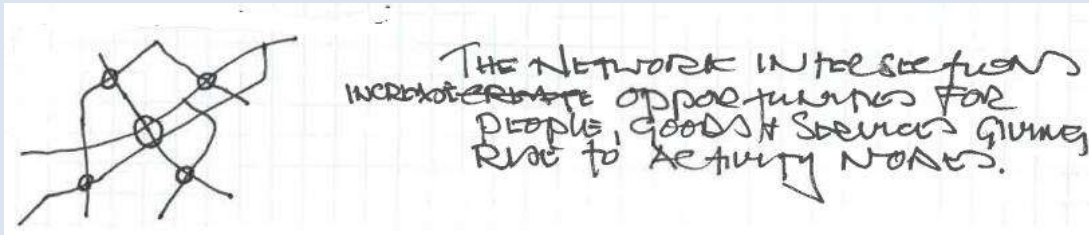 THE NETWORK INTERSECTIONS
INCREASE CREATE OPPORTUNITIES FOR
PEOPLE, GOODS & SERVICES GIVING
RISE TO ACTIVITY NODES.